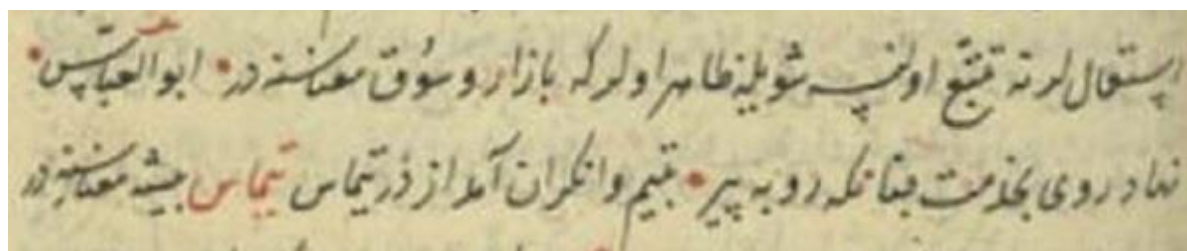 استعمال لرنه تتبع اولنسه شويله ظاهر اولور كه بازار و سُوق معناسنه در • ابو العباس •
نهاد روى بخدمت چنانكه روبه پير • بتيم وانكران آمد از در تيماس تيماس بيشه معناسنه در